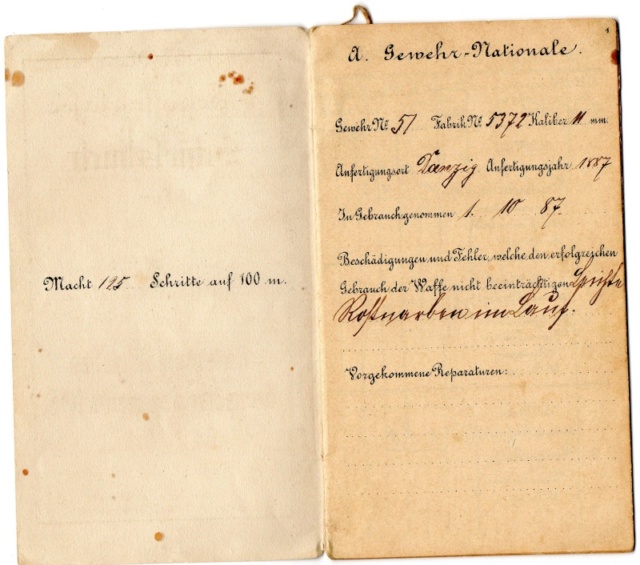 Macht 125 Schritte auf 100 m.
A. Gewehr-Nationale.
Gewehr № 51 Fabrik № 5372 Kaliber 11 mm.
Anfertigungsort Danzig Anfertigungsjahr 1887
In Gebrauch genommen 1. 10 87.
Beschädigungen und Fehler, welche den erfolgreichen
Gebrauch der Waffe nicht beeinträchtigen Leichte
Rostnarben im Lauf.
Vorgekommene Reparaturen: